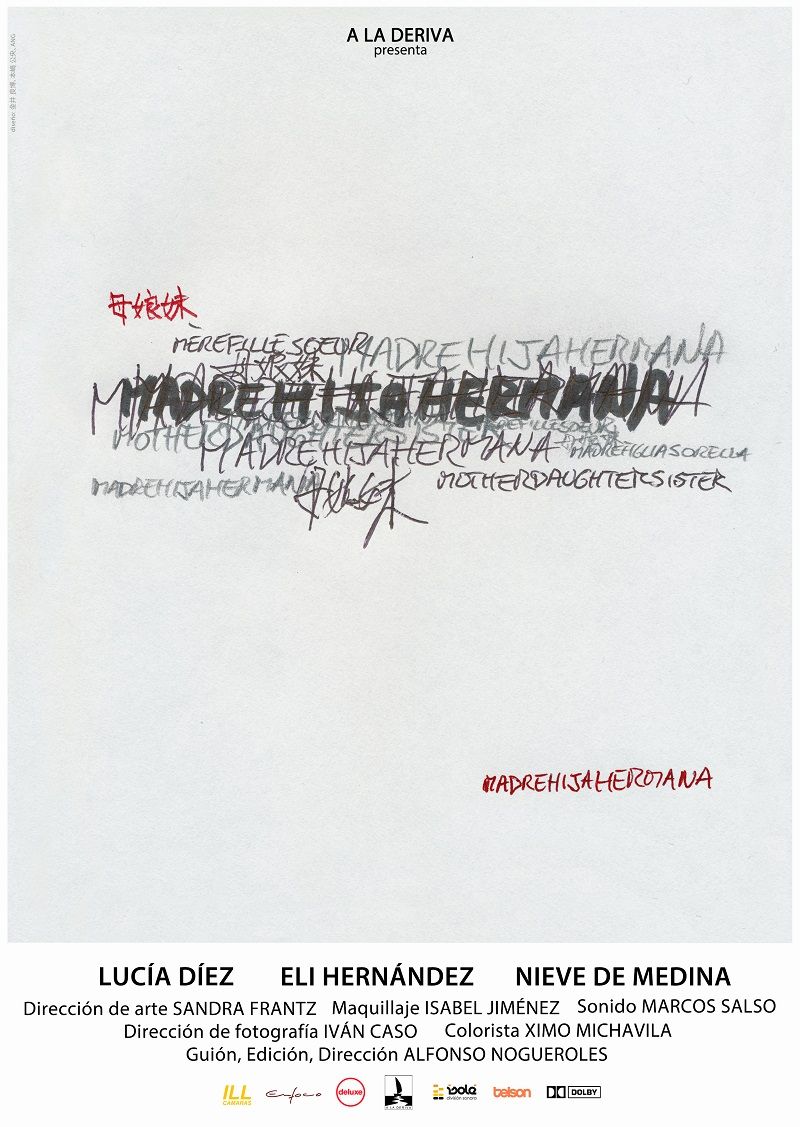 A LA DERIVA
presenta
母娘妹
MÈREFILLESOEUR
MADREHIJAHERMANA
母娘妹
MADREHIJAHERMANA
MADREHIJAHERMANA
MADREFIGLIASORELLA
MADREHIJAHERMANA
母娘妹
MOTHERDAUGHTERSISTER
MADREHIJAHERMANA
LUCÍA DÍEZ ELI HERNÁNDEZ NIEVE DE MEDINA
Dirección de arte SANDRA FRANTZ Maquillaje ISABEL JIMÉNEZ Sonido MARCOS SALSO
Dirección de fotografía IVÁN CASO Colorista XIMO MICHAVILA
Guión, Edición, Dirección ALFONSO NOGUEROLES
ILL CAMARAS Enfoco deluxe A LA DERIVA isolé división sonora telson DOLBY